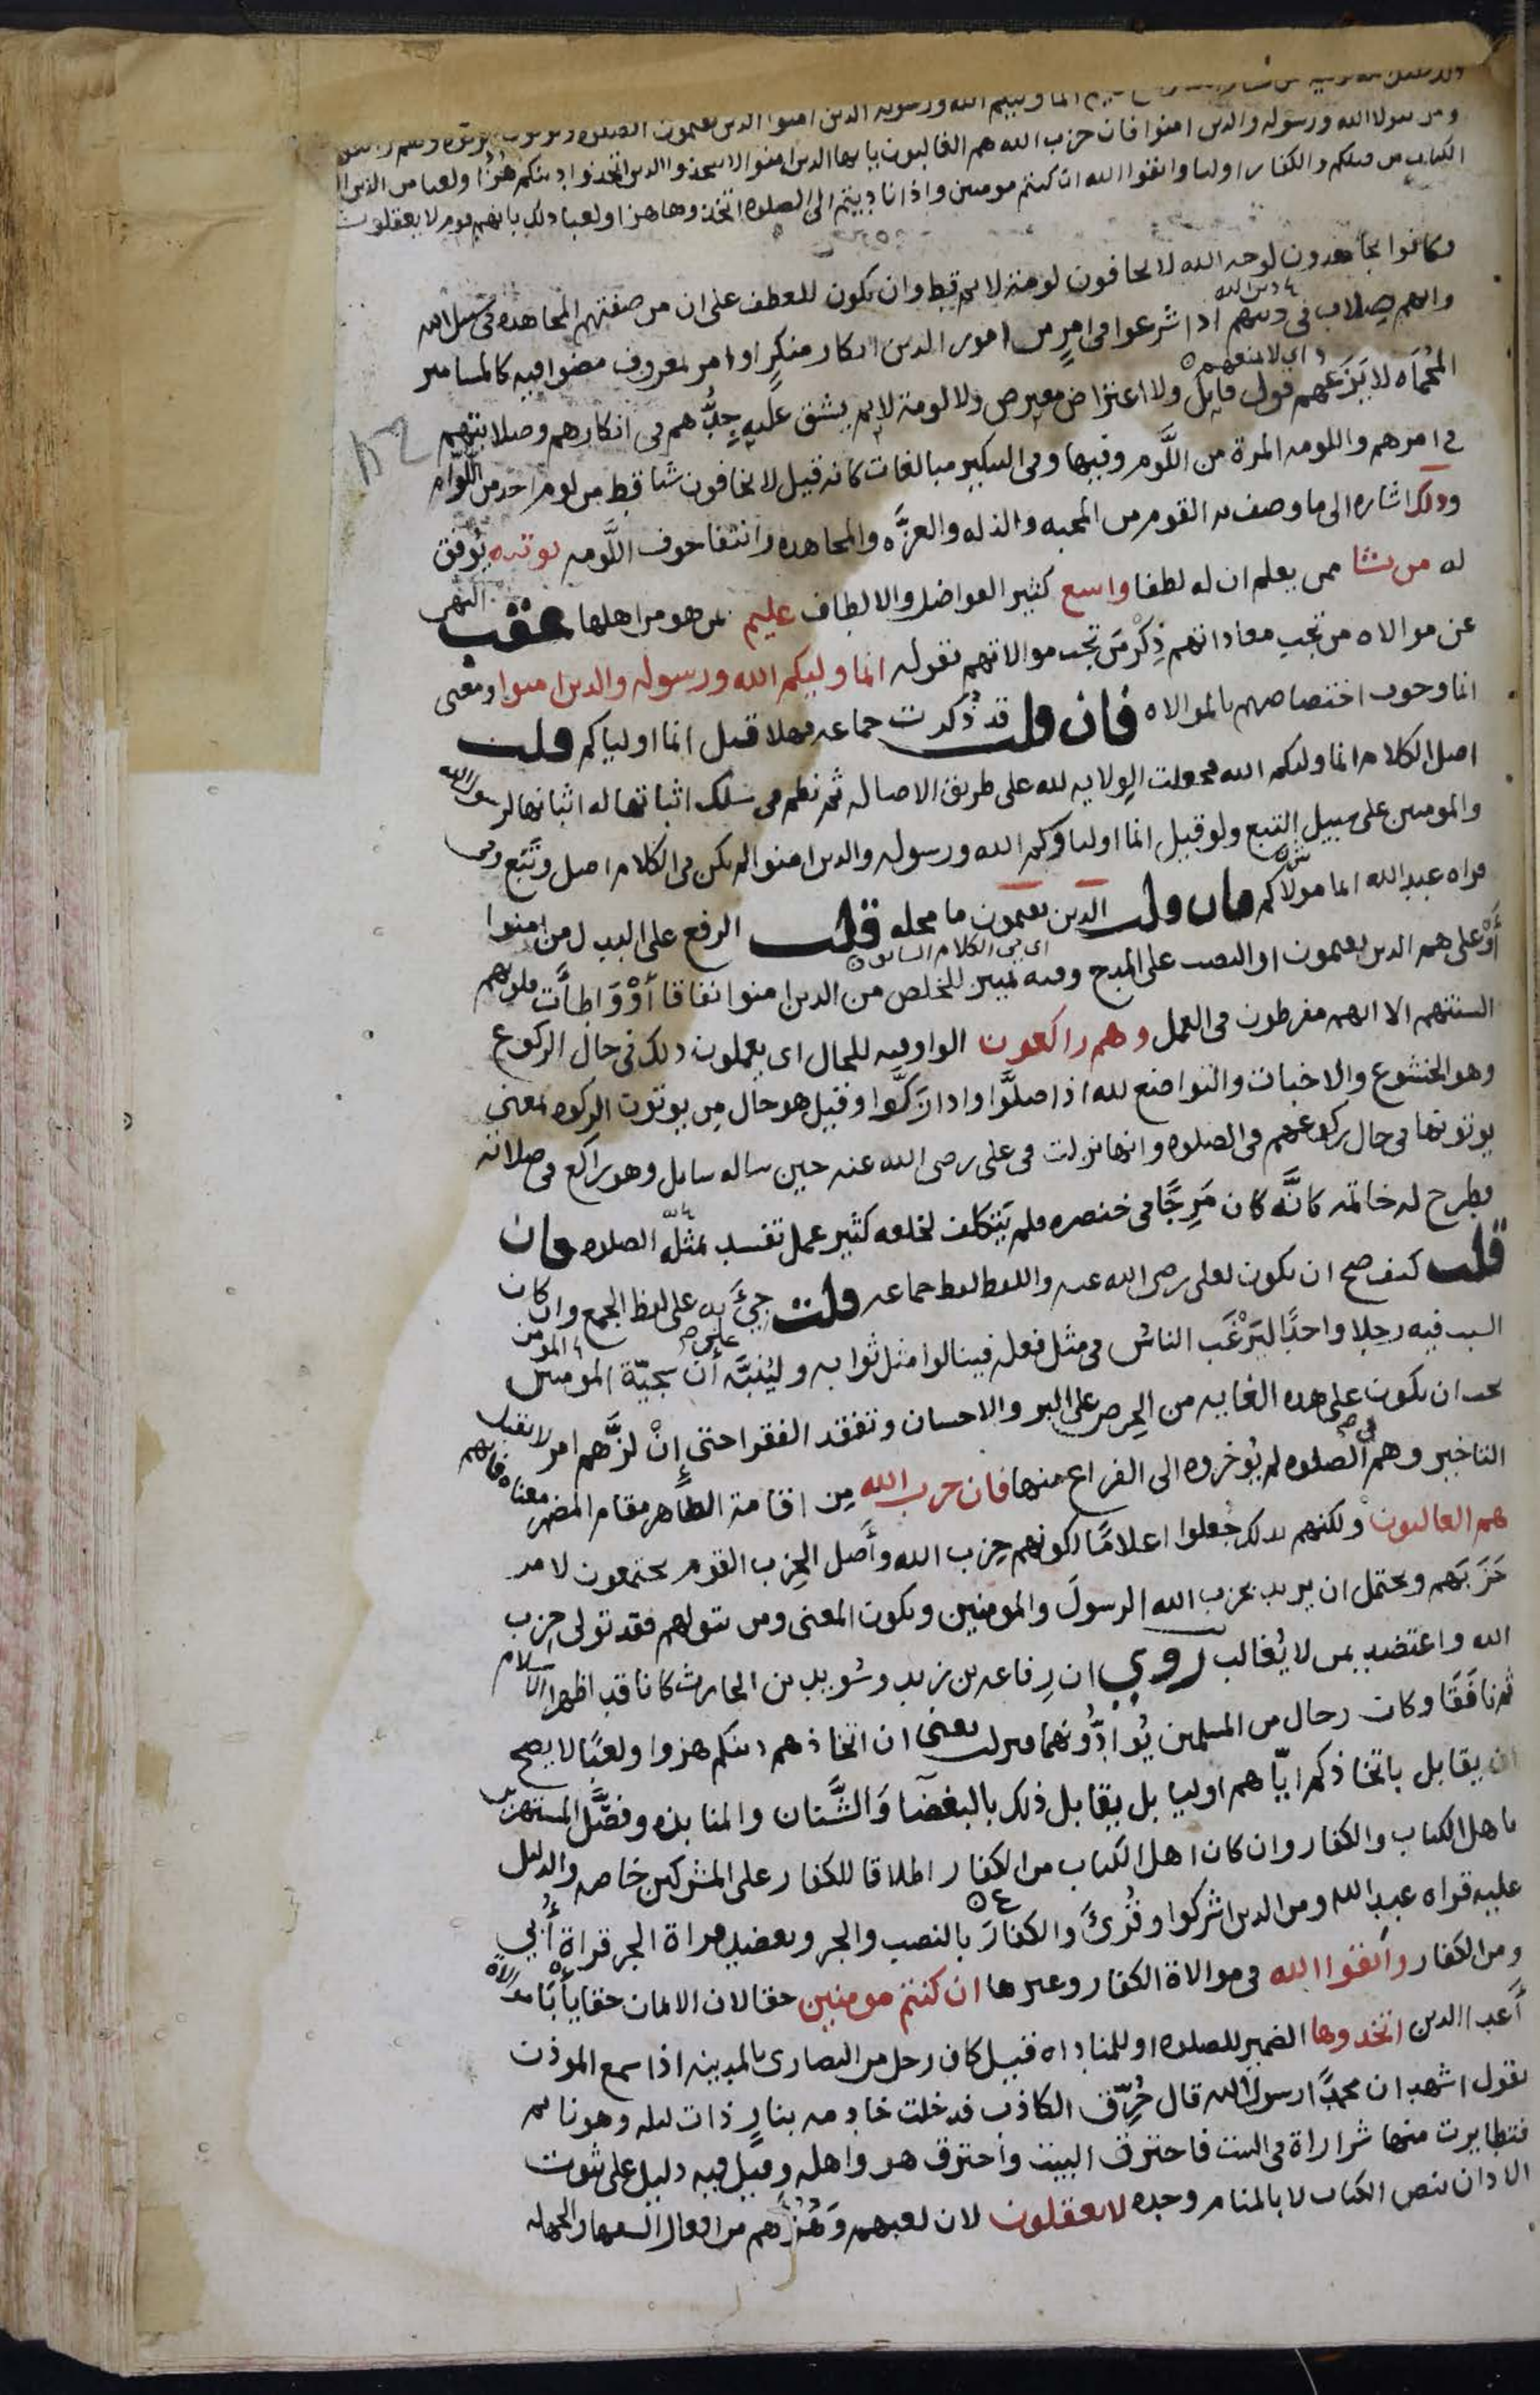 انما وليكم الله ورسوله والذين امنوا الذين يقيمون الصلوه ويوتون
ومن يتولا الله ورسوله والذين امنوا فان حزب الله هم الغالبون يا يها الذين امنوا لا تتخذوا الذين اتخذوا دينكم هزؤا ولعبا من الذين
الكتاب من قبلكم والكفار اوليا واتقوا الله ان كنتم مومنين واذا ناديتم الى الصلوه اتخذوها هزا ولعبا ذلك بانهم قوم لا يعقلون
وكانوا يجاهدون لوجه الله لا يخافون لومة لايم قط وان يكون للعطف على ان من صفتهم المجاهده في سبيل الله
وانهم صلاب في دينهم اذا شرعوا في امرٍ من امور الدين انكار منكرٍ او امر بمعروف مضوا فيه كالمسامير
المحُمَاه لا يَزَعهم قول قايل ولا اعتراض معترض ولا لومة لايم يشق عليه جِدُّهم في انكارهم وصلابتهم
في امرهم واللومه المرة من اللَّوم وفيها وفي التنكير مبالغات كانه قيل لا يخافون شيا قط من لوم احد من اللُّوّام
وذلك اشاره الى ما وصف به القوم من المحبه والذله والعزَّه والمجاهده وانتفا خوف اللَّومه يوتيه يُوفق
له من يشا ممن يعلم ان له لطفا واسع كثير الفواضل والالطاف عليم بمن هو من اهلها عقب النهى
عن موالاه من تجب معاداتهم ذِكْرُ مَن تجب موالاتهم بقوله انما وليكم الله ورسوله والذين امنوا ومعنى
انما وجوب اختصاصهم بالموالاه فان قلت قد ذُكرت جماعه فهلا قيل انما اولياكم قلت
اصل الكلام انما وليكم الله فجعلت الولايه لله على طريق الاصاله ثم نظم في سلك اثباتها له اثباتها لرسول الله
والمومنين على سبيل التبع ولو قيل انما اولياوكم الله ورسوله والذين امنوا لم يكن في الكلام اصل وتَبَع وفى
قراه عبد الله انما مولاكم فان قلت الذين يقيمون ما محله قلت الرفع على البدل من الذين امنوا
أَوْ على هم الذين يقيمون او النصب على المدح وفيه تمييز للخلص من الذين امنوا نفاقا أَوْ وَاطأَت قلوبهم
السنتهم الا انهم مفرطون في العمل وهم راكعون الواو فيه للحال اى يعملون ذلك في حال الركوع
وهو الخشوع والاخبات والتواضع لله اذا صلَّوا واذا زَكَّوا وقيل هو حال مِن يوتون الزكوه بمعنى
يوتونها في حال ركوعهم في الصلوه وانها نزلت في على رضى الله عنه حين ساله سايل وهو راكع في صلاته
فطرح له خاتمه كانَّه كان مَرِجًا في خنصره فلم يَتكلف لخلعه كثير عمل تفسد بمثلِه الصلاه فان
قلت كيف صح ان يكون لعلى رضى الله عنه واللفظ لفظ جماعه قلت جِيَ به على لفظ الجمع وان كان
السبب فيه رجلا واحدًا ليَرْغَب الناسُ في مثل فعله فينالوا مثل ثوابه وليُنَبِّه أَن سجيّة المومنين
يجب ان يكون على هذه الغايه من الحِرص على البر والاحسان وتفقد الفقرا حتى إِنْ لزَّهم امر لا يقبل
التاخير وهم في الصلوه لم يُوخروه الى الفراغ منها فان حزب الله مِن اقامة الظاهر مقام المضمر معناه فانهم
هم الغالبون ولكنهم بذلك جُعلوا اعلامًا لكونهم حِزب الله وأَصل الحِزب القوم يجتمعون لامر
حَزَبَهم ويحتمل ان يريد بحزب الله الرسولَ والمومنين ويكون المعنى ومن يتولهم فقد تولى حِزب
الله واعتضد بمن لا يُغالب رُوي ان رِفاعه بن زيد وسُويد بن الحارث كانا قد اظهرا الاسلام
ثم نافَقَا وكان رجال من المسلمين يُوادُّونهما فنزلت يعنى ان اتخاذهم دينكم هزوا ولعبًا لا يصح
ان يقابل باتخاذكم ايّاهم اوليا بل يقابل ذلك بالبغضا وَالشَّنان والمنابذه وفصَّل المستهزئين
باهل الكتاب والكفار وان كان اهل الكتاب من الكفار اطلاقا للكفار على المشركين خاصه والدليل
عليه قراه عبد الله ومن الذين اشركوا وقُرئَ والكفارَ بالنصب والجر ويعضد قراة الجر قراةُ أُبي
ومن الكفار واتقوا الله في موالاة الكفار وغيرها ان كنتم مومنين حقا لان الايمان حقا يأبَا موالاة
أَعدا الدين اتخذوها الضمير للصلاه او للمناداه قيل كان رجل من النصارى بالمدينه اذا سمع الموذن
يقول اشهد ان محمدًا رسول الله قال حُرِّق الكاذب فدخلت خادمه بنارٍ ذات ليله وهو نايم
فتطايرت منها شراراة في البيت فاحترق البيت واحترق هو واهله وقيل فيه دليل على ثبوت
الاذان بنص الكتاب لا بالمنام وحده لا يعقلون لان لعبهم وَهُزْءَهم من افعال السفها والجهله